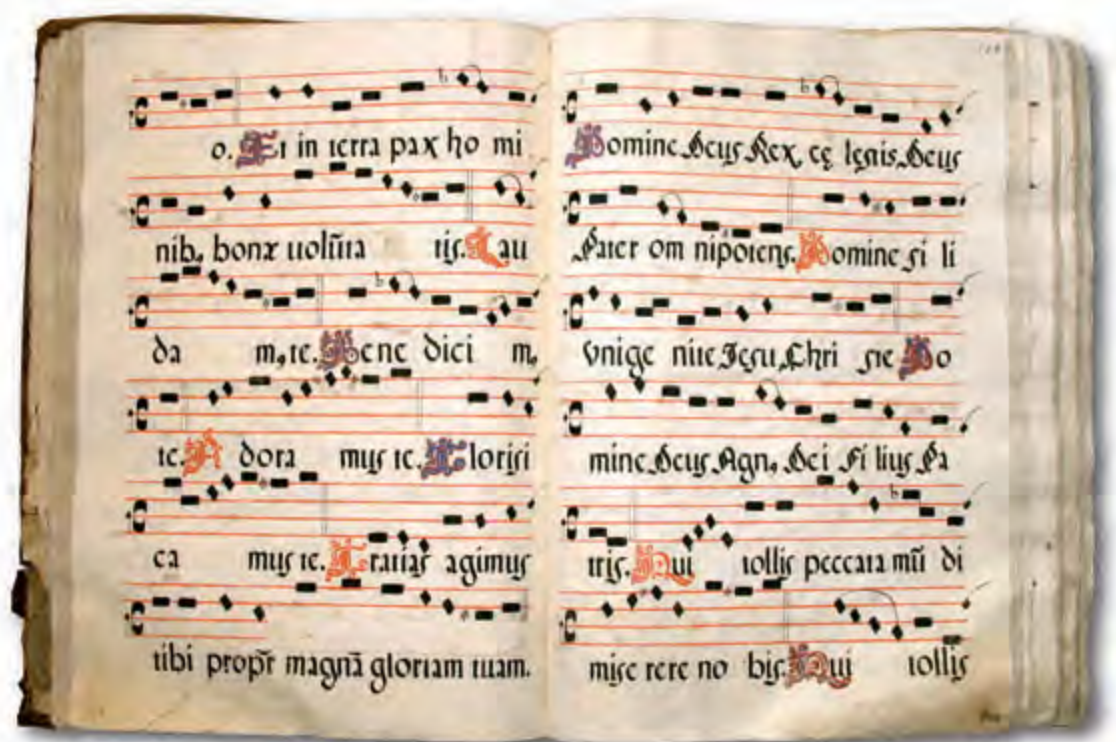 o. Et in terra pax ho mi
nib, bonæ uolũta tis. Lau
da m, te. Bene dici m,
te. Adora mus te. Glorifi
ca mus te. Gratias agimus
tibi propr̃ magnã gloriam tuam.
Domine Deus Rex, cę lestis, Deus
Pater om nipotens. Domine fi li
Vnige nite Jesu, Chri ste Do
mine Deus Agn, Dei Fi lius Pa
tris. Qui tollis peccata mũ di
mise rere no bis. Qui tollis